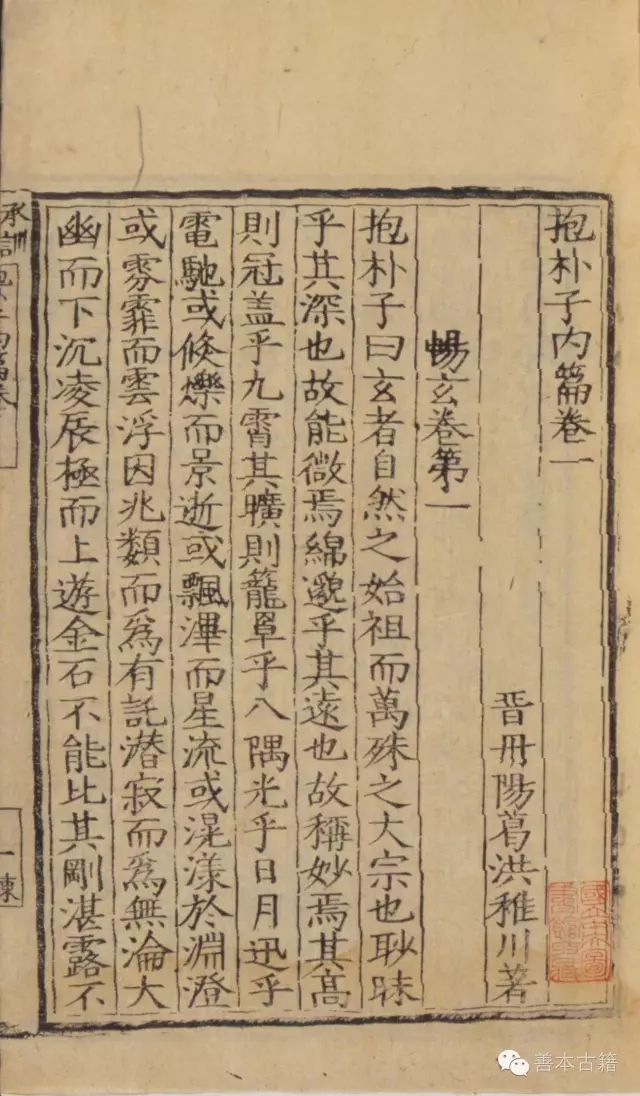 抱朴子内篇卷一
晋丹陽葛洪稚川著
暢玄卷第一
抱朴子曰玄者自然之始祖而萬殊之大宗也眇昧
乎其深也故能微焉綿邈乎其遠也故稱妙焉其髙
則冠盖乎九霄其曠則籠罩乎八隅光乎日月迅乎
電馳或倐爍而景逝或飄滭而星流或滉漾於淵澄
或雰霏而雲浮因兆類而爲有託潜寂而爲無淪大
幽而下沉凌辰極而上遊金石不能比其剛湛露不
承訓
一
善本古籍